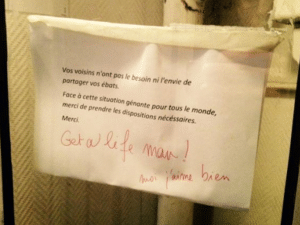 Vos voisins n'ont pas le besoin ni l'envie de
partager vos ébats.
Face à cette situation gênante pour tous le monde,
merci de prendre les dispositions nécéssaires.
Merci.
Get a life man !
moi j'aime bien